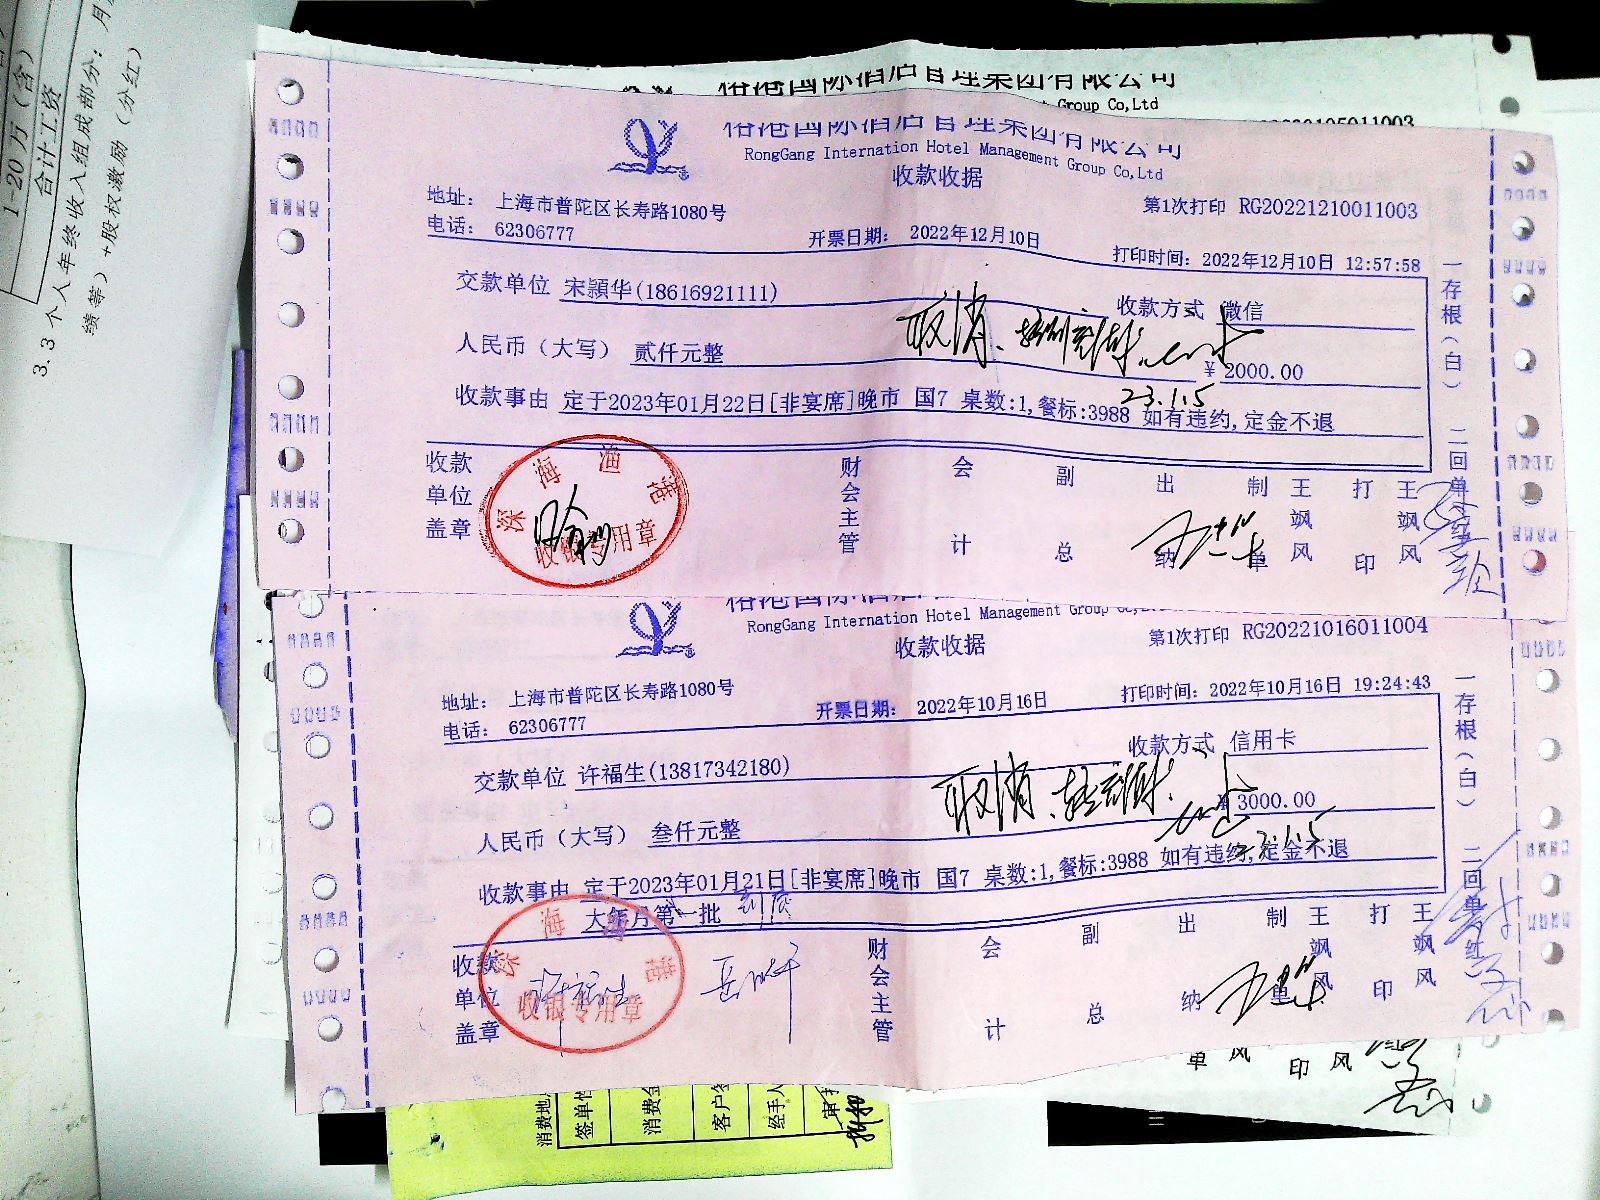 1-20万(含)
合计工资
3.3 个人年终收入组成部分：月
绩等）+股权激励（分红）
Group Co,Ltd
RongGang Internation Hotel Management Group Co,Ltd
收款收据
地址： 上海市普陀区长寿路1080号
第1次打印 RG20221210011003
电话： 62306777
开票日期： 2022年12月10日
打印时间：2022年12月10日 12:57:58
交款单位 宋頴华(18616921111)
收款方式 微信
取消
人民币（大写） 贰仟元整
¥2000.00
23.1.5
收款事由 定于2023年01月22日[非宴席]晚市 国7 桌数:1,餐标:3988 如有违约,定金不退
一存根(白) 二回单
收款单位盖章
深海渔港
收银专用章
财会主管 会计 副总 出纳 制单 王飒风 打印 王飒风
RongGang Internation Hotel Management Group
收款收据
第1次打印 RG20221016011004
地址： 上海市普陀区长寿路1080号
电话： 62306777
开票日期： 2022年10月16日
打印时间：2022年10月16日 19:24:43
交款单位 许福生(13817342180)
收款方式 信用卡
取消
人民币（大写） 叁仟元整
¥3000.00
收款事由 定于2023年01月21日[非宴席]晚市 国7 桌数:1,餐标:3988 如有违约,定金不退
大年月第一批
一存根(白) 二回单(红)
收款单位盖章
深海渔港
收银专用章
财会主管 会计 副总 出纳 制单 王飒风 打印 王飒风
单 风 印 风
消费地
签单
消费金
客户
经手人